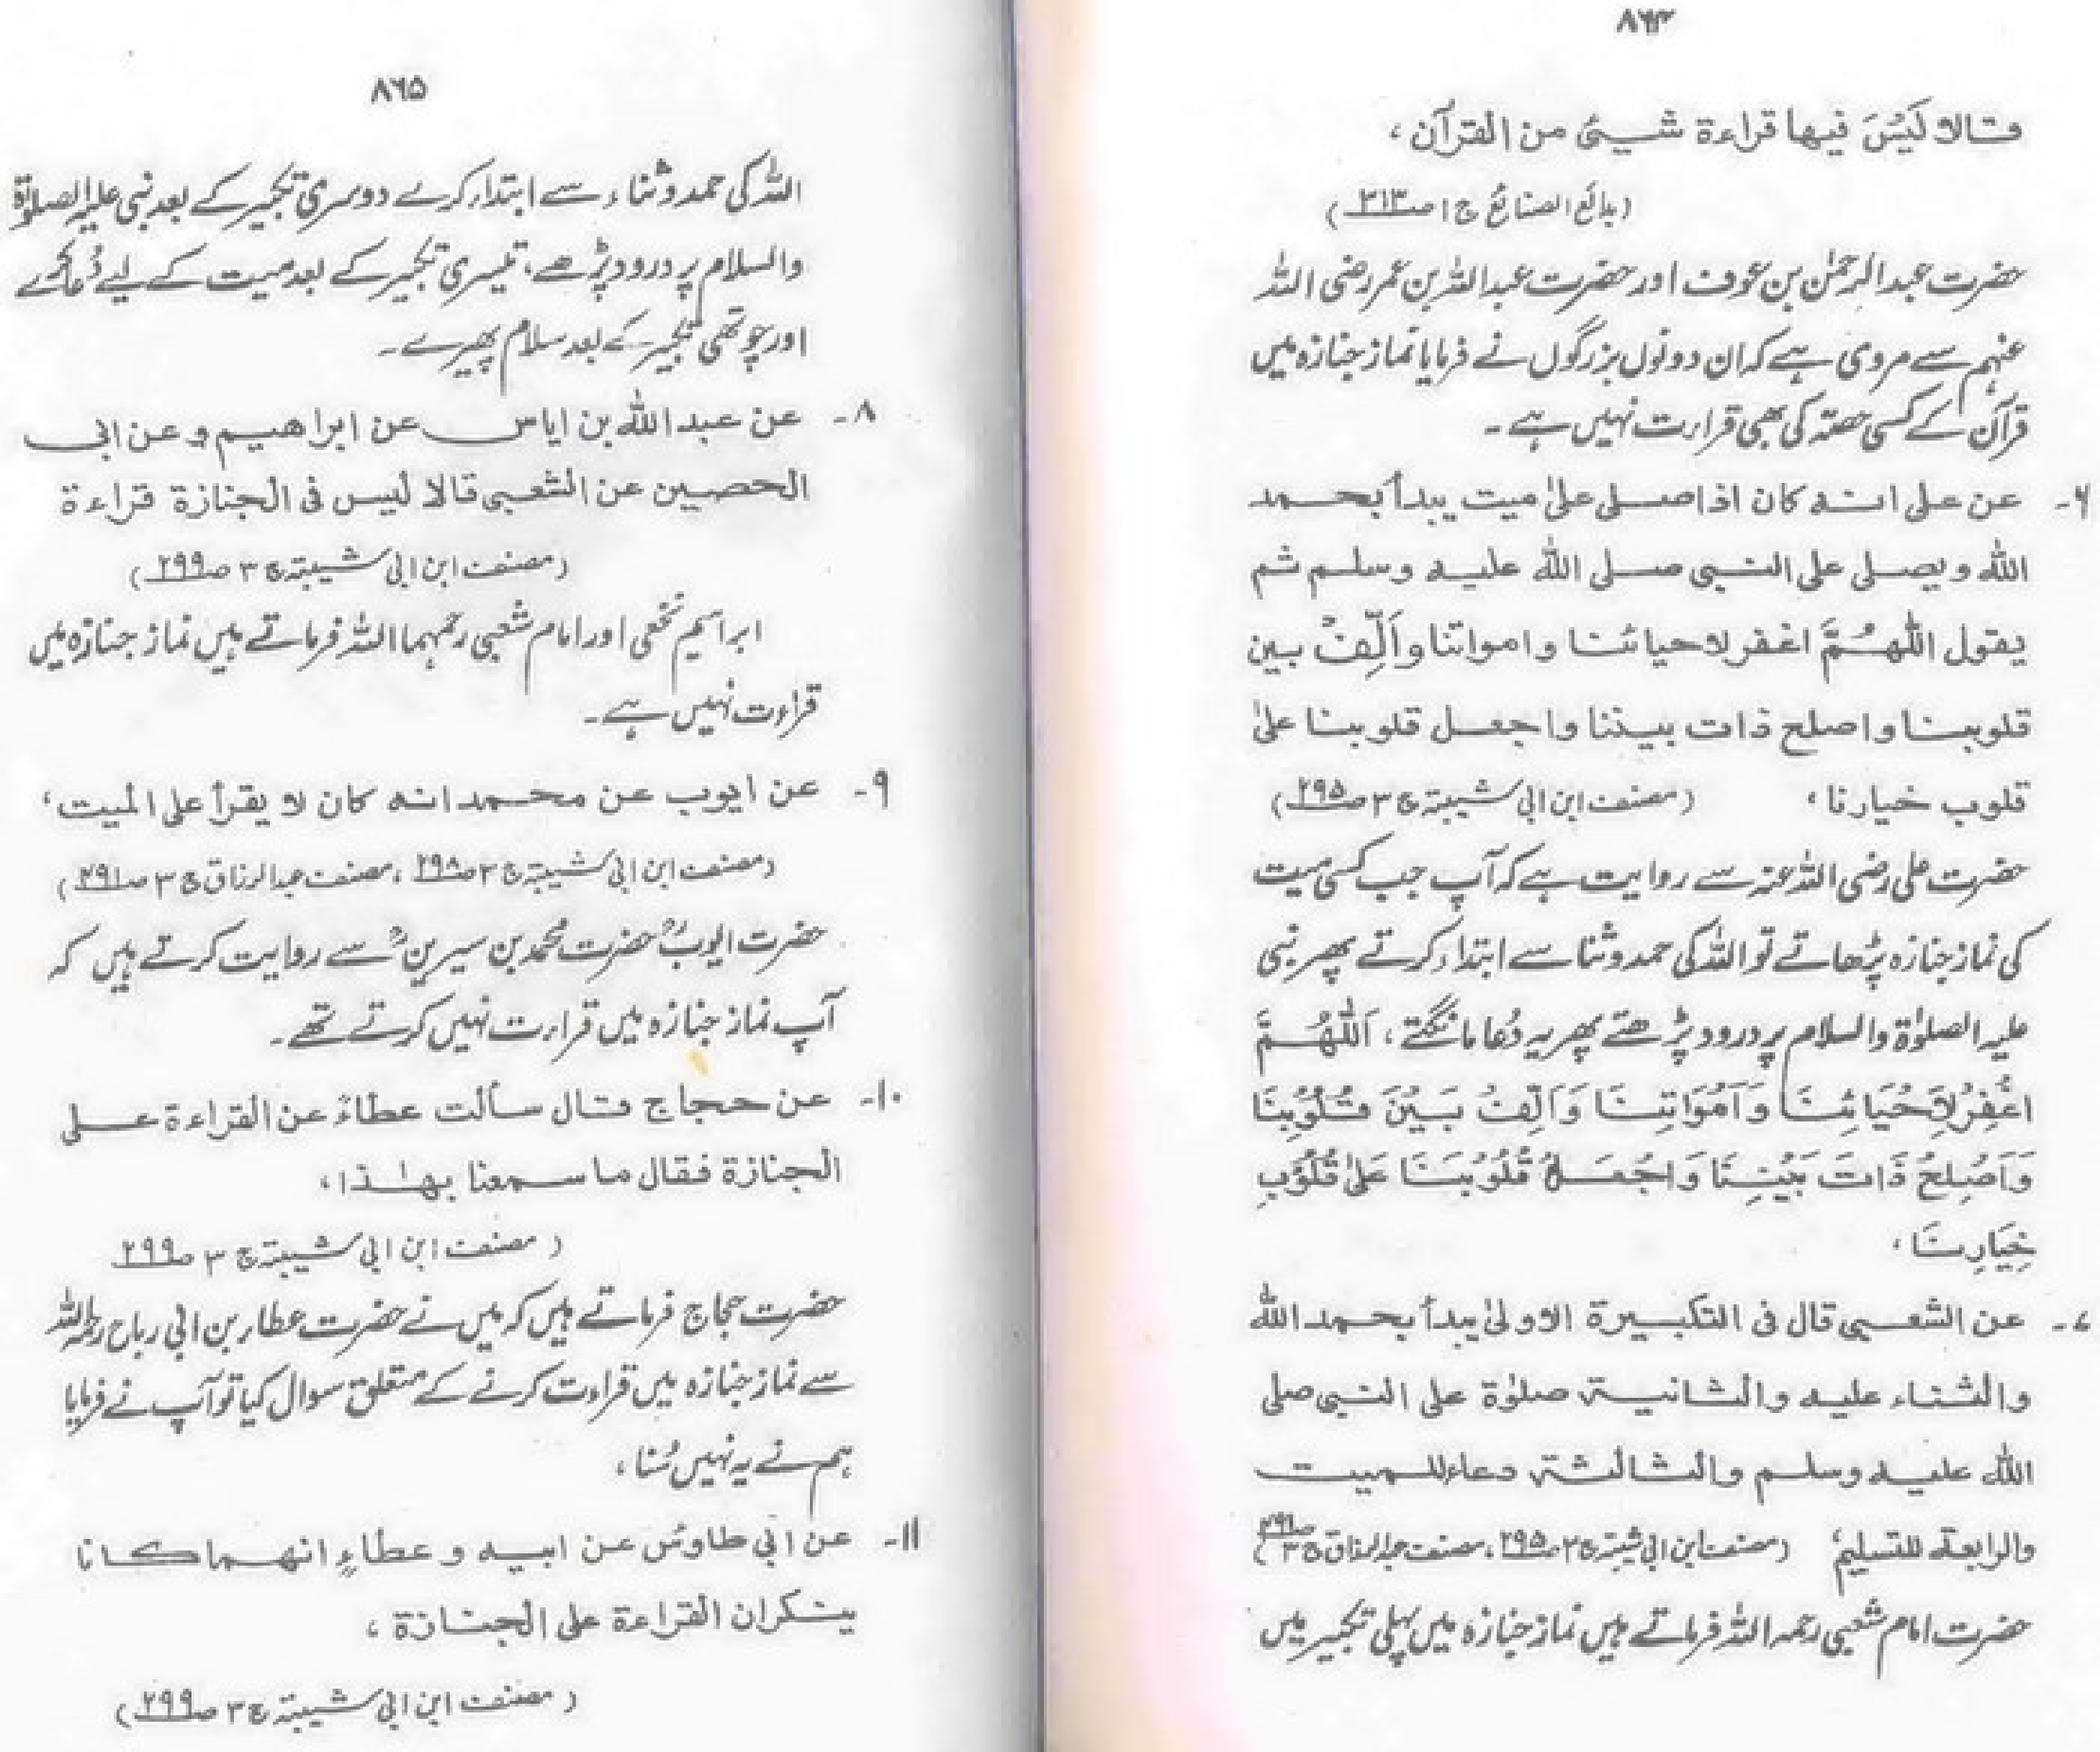 ۸۶۴
قالا لَيْسَ فيها قراءة شيئ من القرآن ،
(بدائع الصنائع ج ۱ ص۳۱۳)
حضرت عبدالرحمٰن بن عوف اور حضرت عبداللہ بن عمر رضی اللہ
عنہم سے مروی ہے کہ ان دونوں بزرگوں نے فرمایا نماز جنازہ میں
قرآن کے کسی حصتہ کی بھی قرارت نہیں ہے ۔
۶۔ عن على انه كان اذا صلى علىٰ ميت يبدأ بحمد
الله ويصلى على النبى صلى الله عليه وسلم ثم
يقول اللّٰهُمَّ اغفر لاحيائنا وامواتنا واَلِّفْ بين
قلوبنا واصلح ذات بيننا واجعل قلوبنا علىٰ
قلوب خيارنا ، (مصنف ابن ابی شیبۃ ج ۳ ص۲۹۵)
حضرت علی رضی اللہ عنہ سے روایت ہے کہ آپ جب کسی میت
کی نماز جنازہ پڑھاتے تو اللہ کی حمد و ثنا سے ابتداء کرتے پھر نبی
علیہ الصلوٰۃ والسلام پر درود پڑھتے پھر یہ دُعا مانگتے ، اَللّٰهُمَّ
اغْفِرْ لِاَحْيَائِنَا وَاَمْوَاتِنَا وَاَلِّفْ بَيْنَ قُلُوْبِنَا
وَاَصْلِحْ ذَاتَ بَيْنِنَا وَاجْعَلْ قُلُوْبَنَا عَلىٰ قُلُوْبِ
خِيَارِنَا ،
۷۔ عن الشعبى قال فى التكبيرة الاولىٰ يبدأ بحمد الله
والثناء عليه والثانية صلوٰة على النبى صلى
الله عليه وسلم والثالثة دعاء للميت
والرابعة للتسليم (مصنف ابن ابی شیبۃ ج ۳ ص۲۹۵ ، مصنف عبدالرزاق ج ۳ ص۴۹۱)
حضرت امام شعبی رحمہ اللہ فرماتے ہیں نماز جنازہ میں پہلی تکبیر میں
۸۶۵
اللہ کی حمد و ثناء سے ابتداء کرے دوسری تکبیر کے بعد نبی علیہ الصلوٰۃ
والسلام پر درود پڑھے ، تیسری تکبیر کے بعد میت کے لیے دُعا کرے
اور چوتھی تکبیر کے بعد سلام پھیرے ۔
۸۔ عن عبد الله بن اياس عن ابراهيم وعن ابى
الحصين عن الشعبى قالا ليس فى الجنازة قراءة
(مصنف ابن ابی شیبۃ ج ۳ ص۲۹۹)
ابراہیم نخعی اور امام شعبی رحمہما اللہ فرماتے ہیں نماز جنازہ میں
قراءت نہیں ہے ۔
۹۔ عن ايوب عن محمد انه كان لا يقرأ على الميت ،
(مصنف ابن ابی شیبۃ ج ۳ ص۲۹۸ ، مصنف عبدالرزاق ج ۳ ص۴۹۱)
حضرت ایوبؒ حضرت محمد بن سیرینؒ سے روایت کرتے ہیں کہ
آپ نماز جنازہ میں قرارت نہیں کرتے تھے ۔
۱۰۔ عن حجاج قال سألت عطاءً عن القراءة على
الجنازة فقال ما سمعنا بهٰذا ،
( مصنف ابن ابی شیبۃ ج ۳ ص۲۹۹
حضرت حجاج فرماتے ہیں کہ میں نے حضرت عطاء بن ابی رباح رحمہ اللہ
سے نماز جنازہ میں قراءت کرنے کے متعلق سوال کیا تو آپ نے فرمایا
ہم نے یہ نہیں سُنا ،
۱۱۔ عن ابى طاوس عن ابيه و عطاءٍ انهما كانا
ينكران القراءة على الجنازة ،
( مصنف ابن ابی شیبۃ ج ۳ ص۲۹۹)